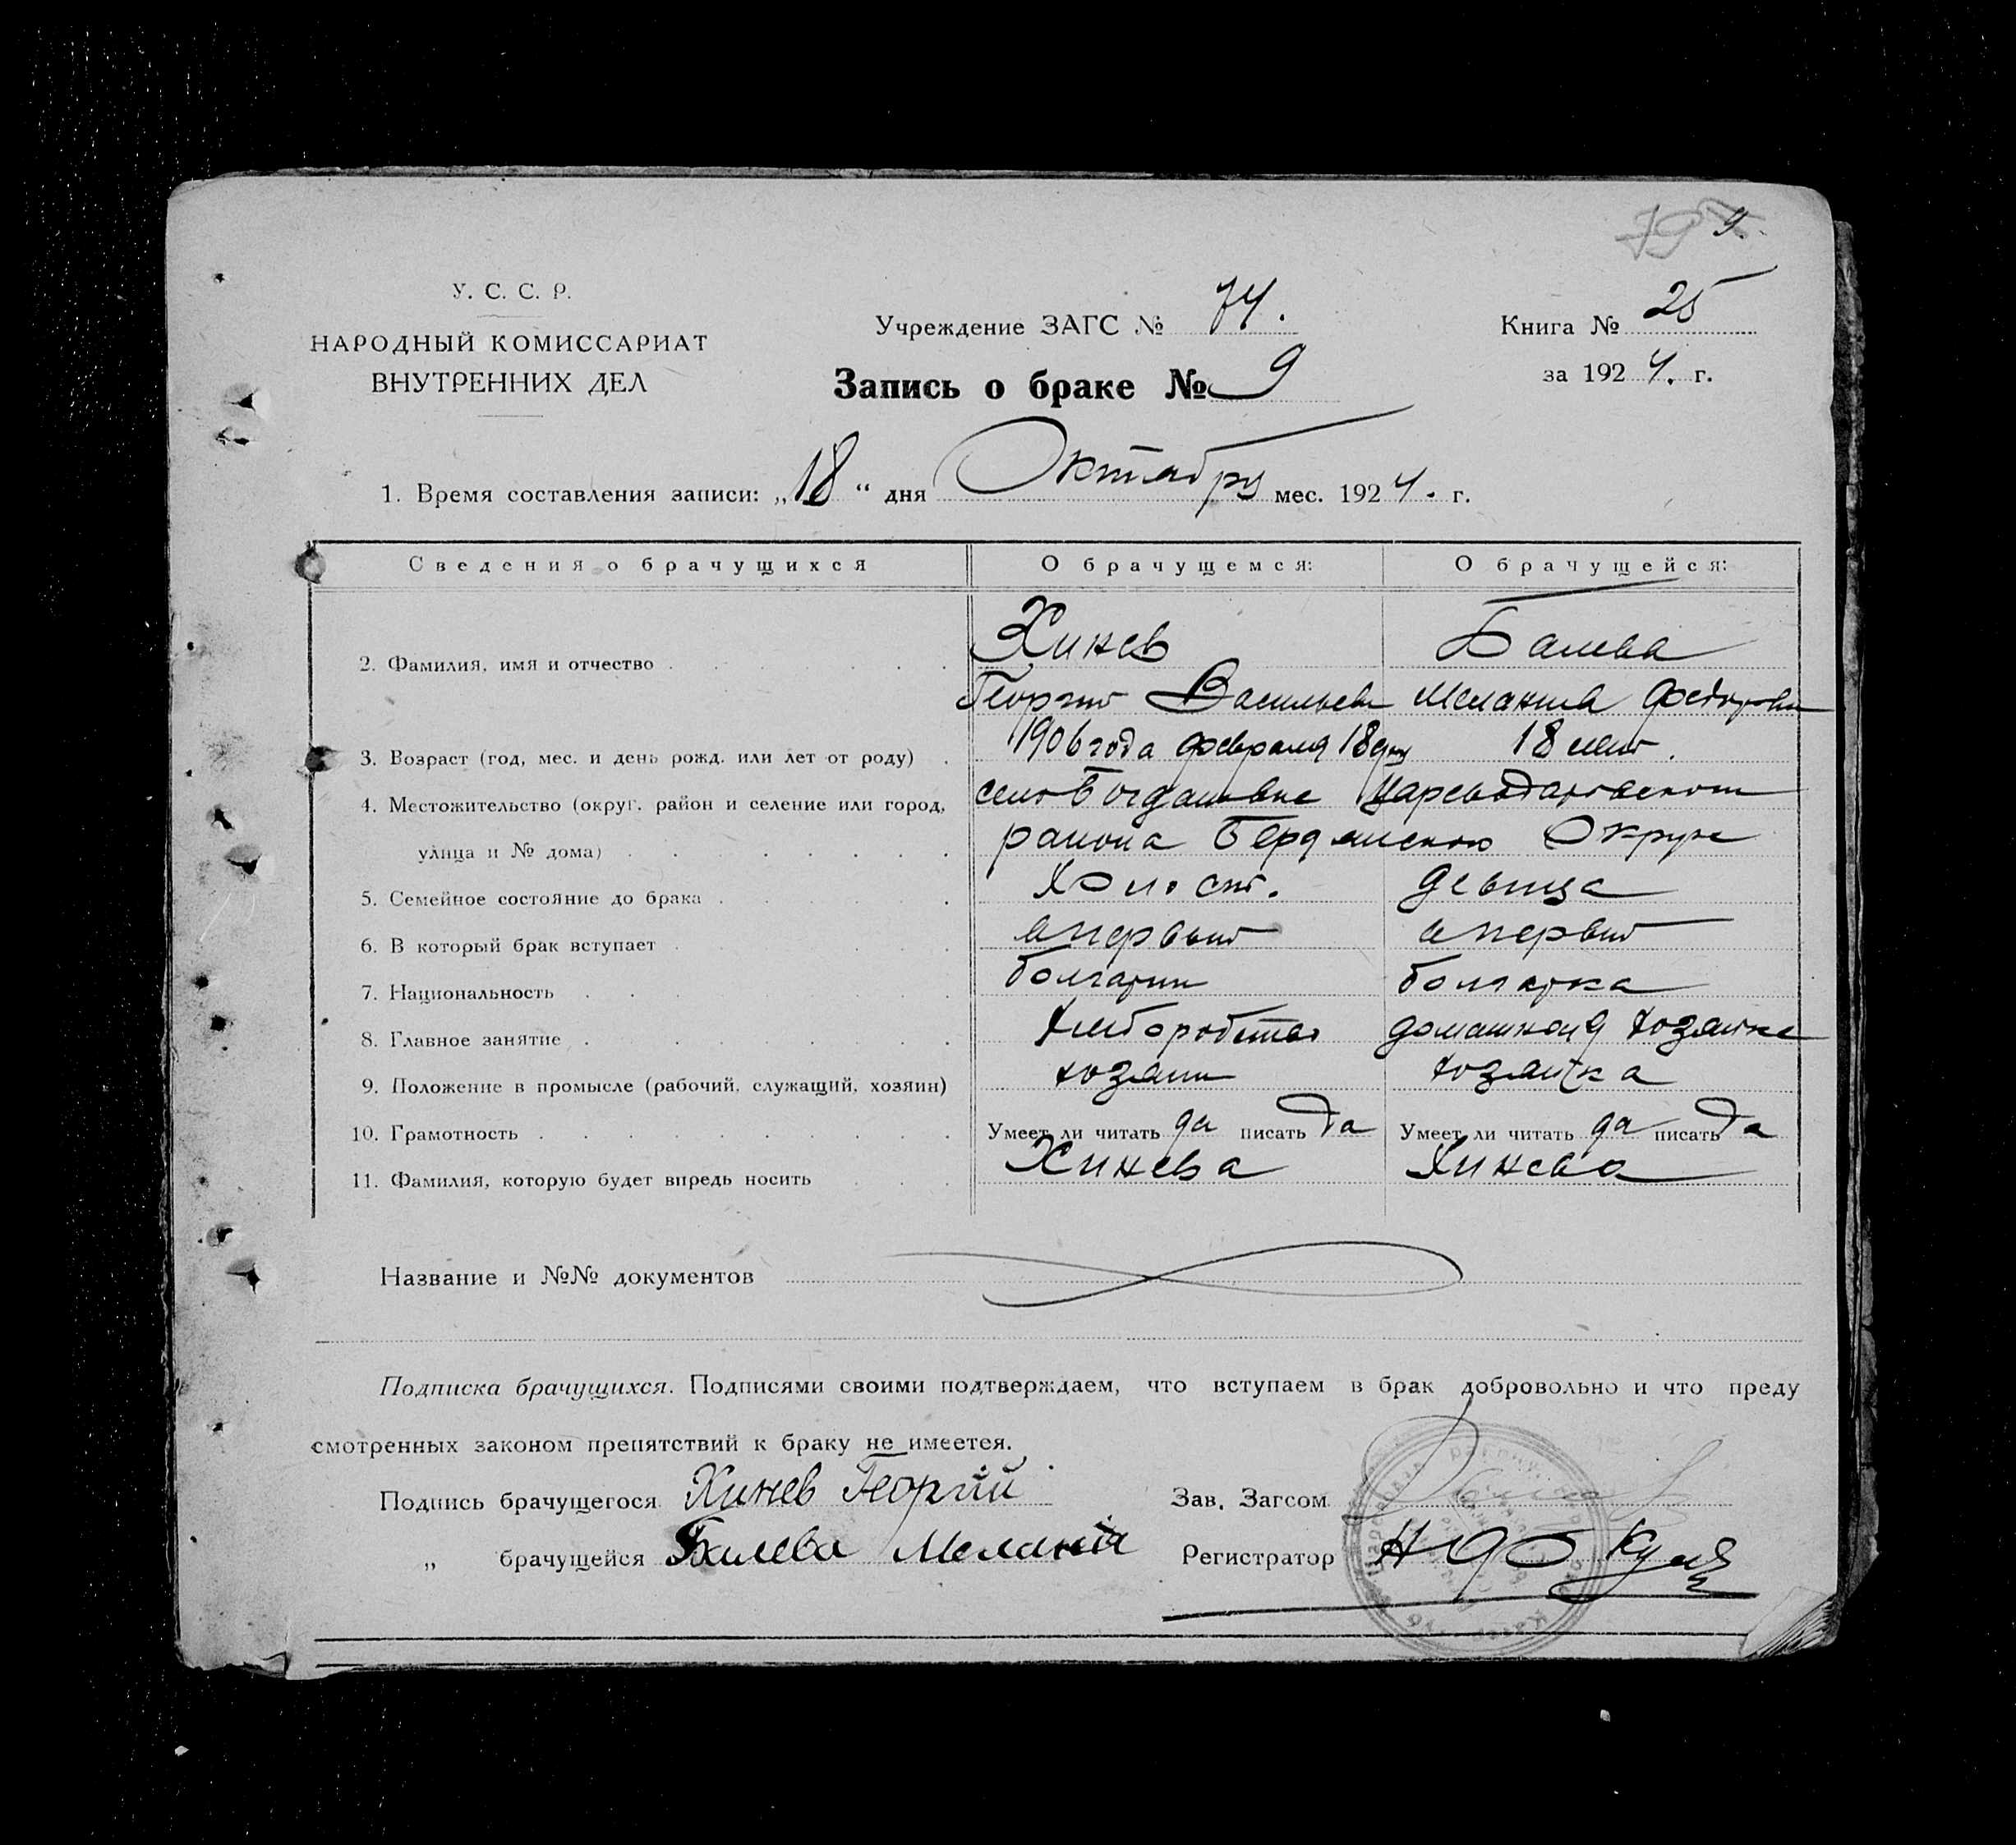 9.
У. С. С. Р.
НАРОДНЫЙ КОМИССАРИАТ
ВНУТРЕННИХ ДЕЛ
Учреждение ЗАГС № 74.
Книга № 25
Запись о браке № 9
за 1924. г.
1. Время составления записи: „18“ дня Октября мес. 1924. г.
Сведения о брачущихся О брачущемся: О брачущейся:
2. Фамилия, имя и отчество Хинев Балева
Георгий Васильев Мелания Федоровн
3. Возраст (год, мес. и день рожд. или лет от роду) 1906 года февраля 18 дня 18 лет.
4. Местожительство (округ, район и селение или город, село Богдановке Цареводаровского
улица и № дома) района Бердянского Округа
5. Семейное состояние до брака Холост. девица
6. В который брак вступает в первый в первый
7. Национальность болгарин болгарка
8. Главное занятие домашная хозяйке
9. Положение в промысле (рабочий, служащий, хозяин) хозяин хозяйка
10. Грамотность Умеет ли читать да писать да Умеет ли читать да писать да
11. Фамилия, которую будет впредь носить Хинева Хинева
Название и №№ документов
Подписка брачущихся. Подписями своими подтверждаем, что вступаем в брак добровольно и что преду
смотренных законом препятствий к браку не имеется.
Подпись брачущегося Хинев Георгій Зав. Загсом
„ брачущейся Балева Меланія Регистратор